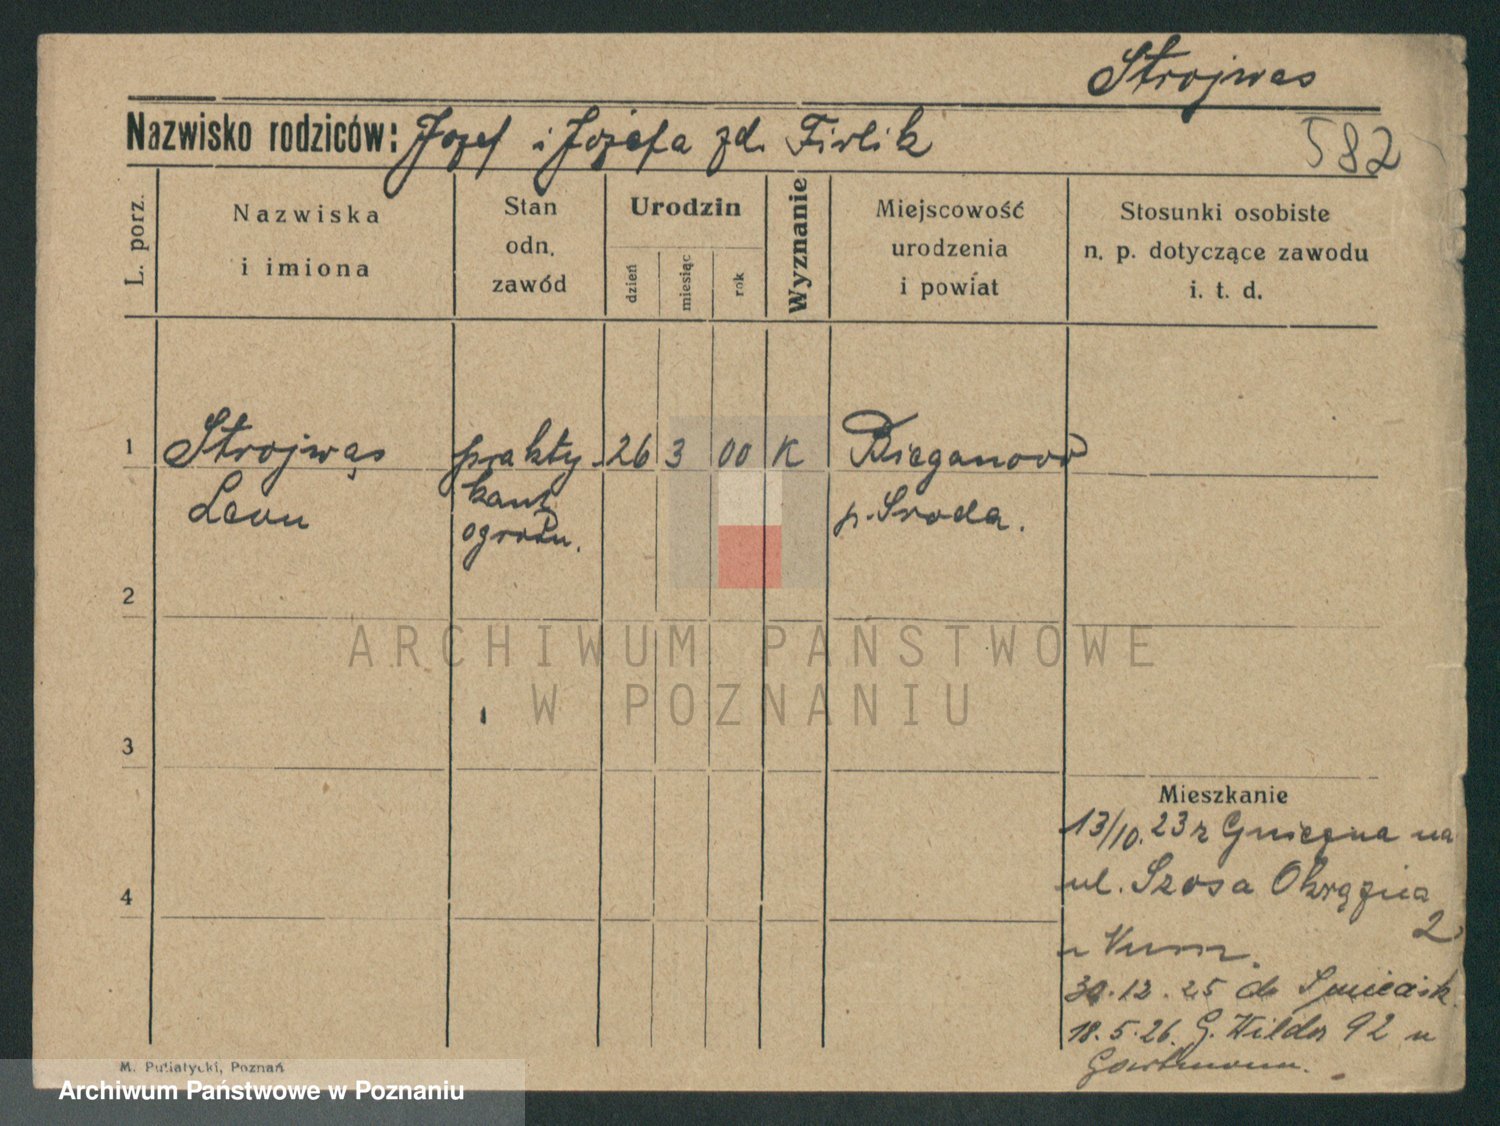 Strojwas
Nazwisko rodziców: Jozef i Jozefa zd. Firlik
582
L. porz.
Nazwiska i imiona
Stan odn. zawód
Urodzin
dzień
miesiąc
rok
Wyznanie
Miejscowość urodzenia i powiat
Stosunki osobiste n. p. dotyczące zawodu i. t. d.
1 Strojwąs prakty 26 3 00 K Bieganowo
Leon kant p. Sroda.
ogrodn.
2
ARCHIWUM PAŃSTWOWE
W POZNANIU
3
Mieszkanie
13/10. 23 z Gniezna na
ul. Szosa Okrężna
4
2
30.12.25 do
18.5.26. G. Wilda 92 u
M. Putiatycki, Poznań
Archiwum Państwowe w Poznaniu